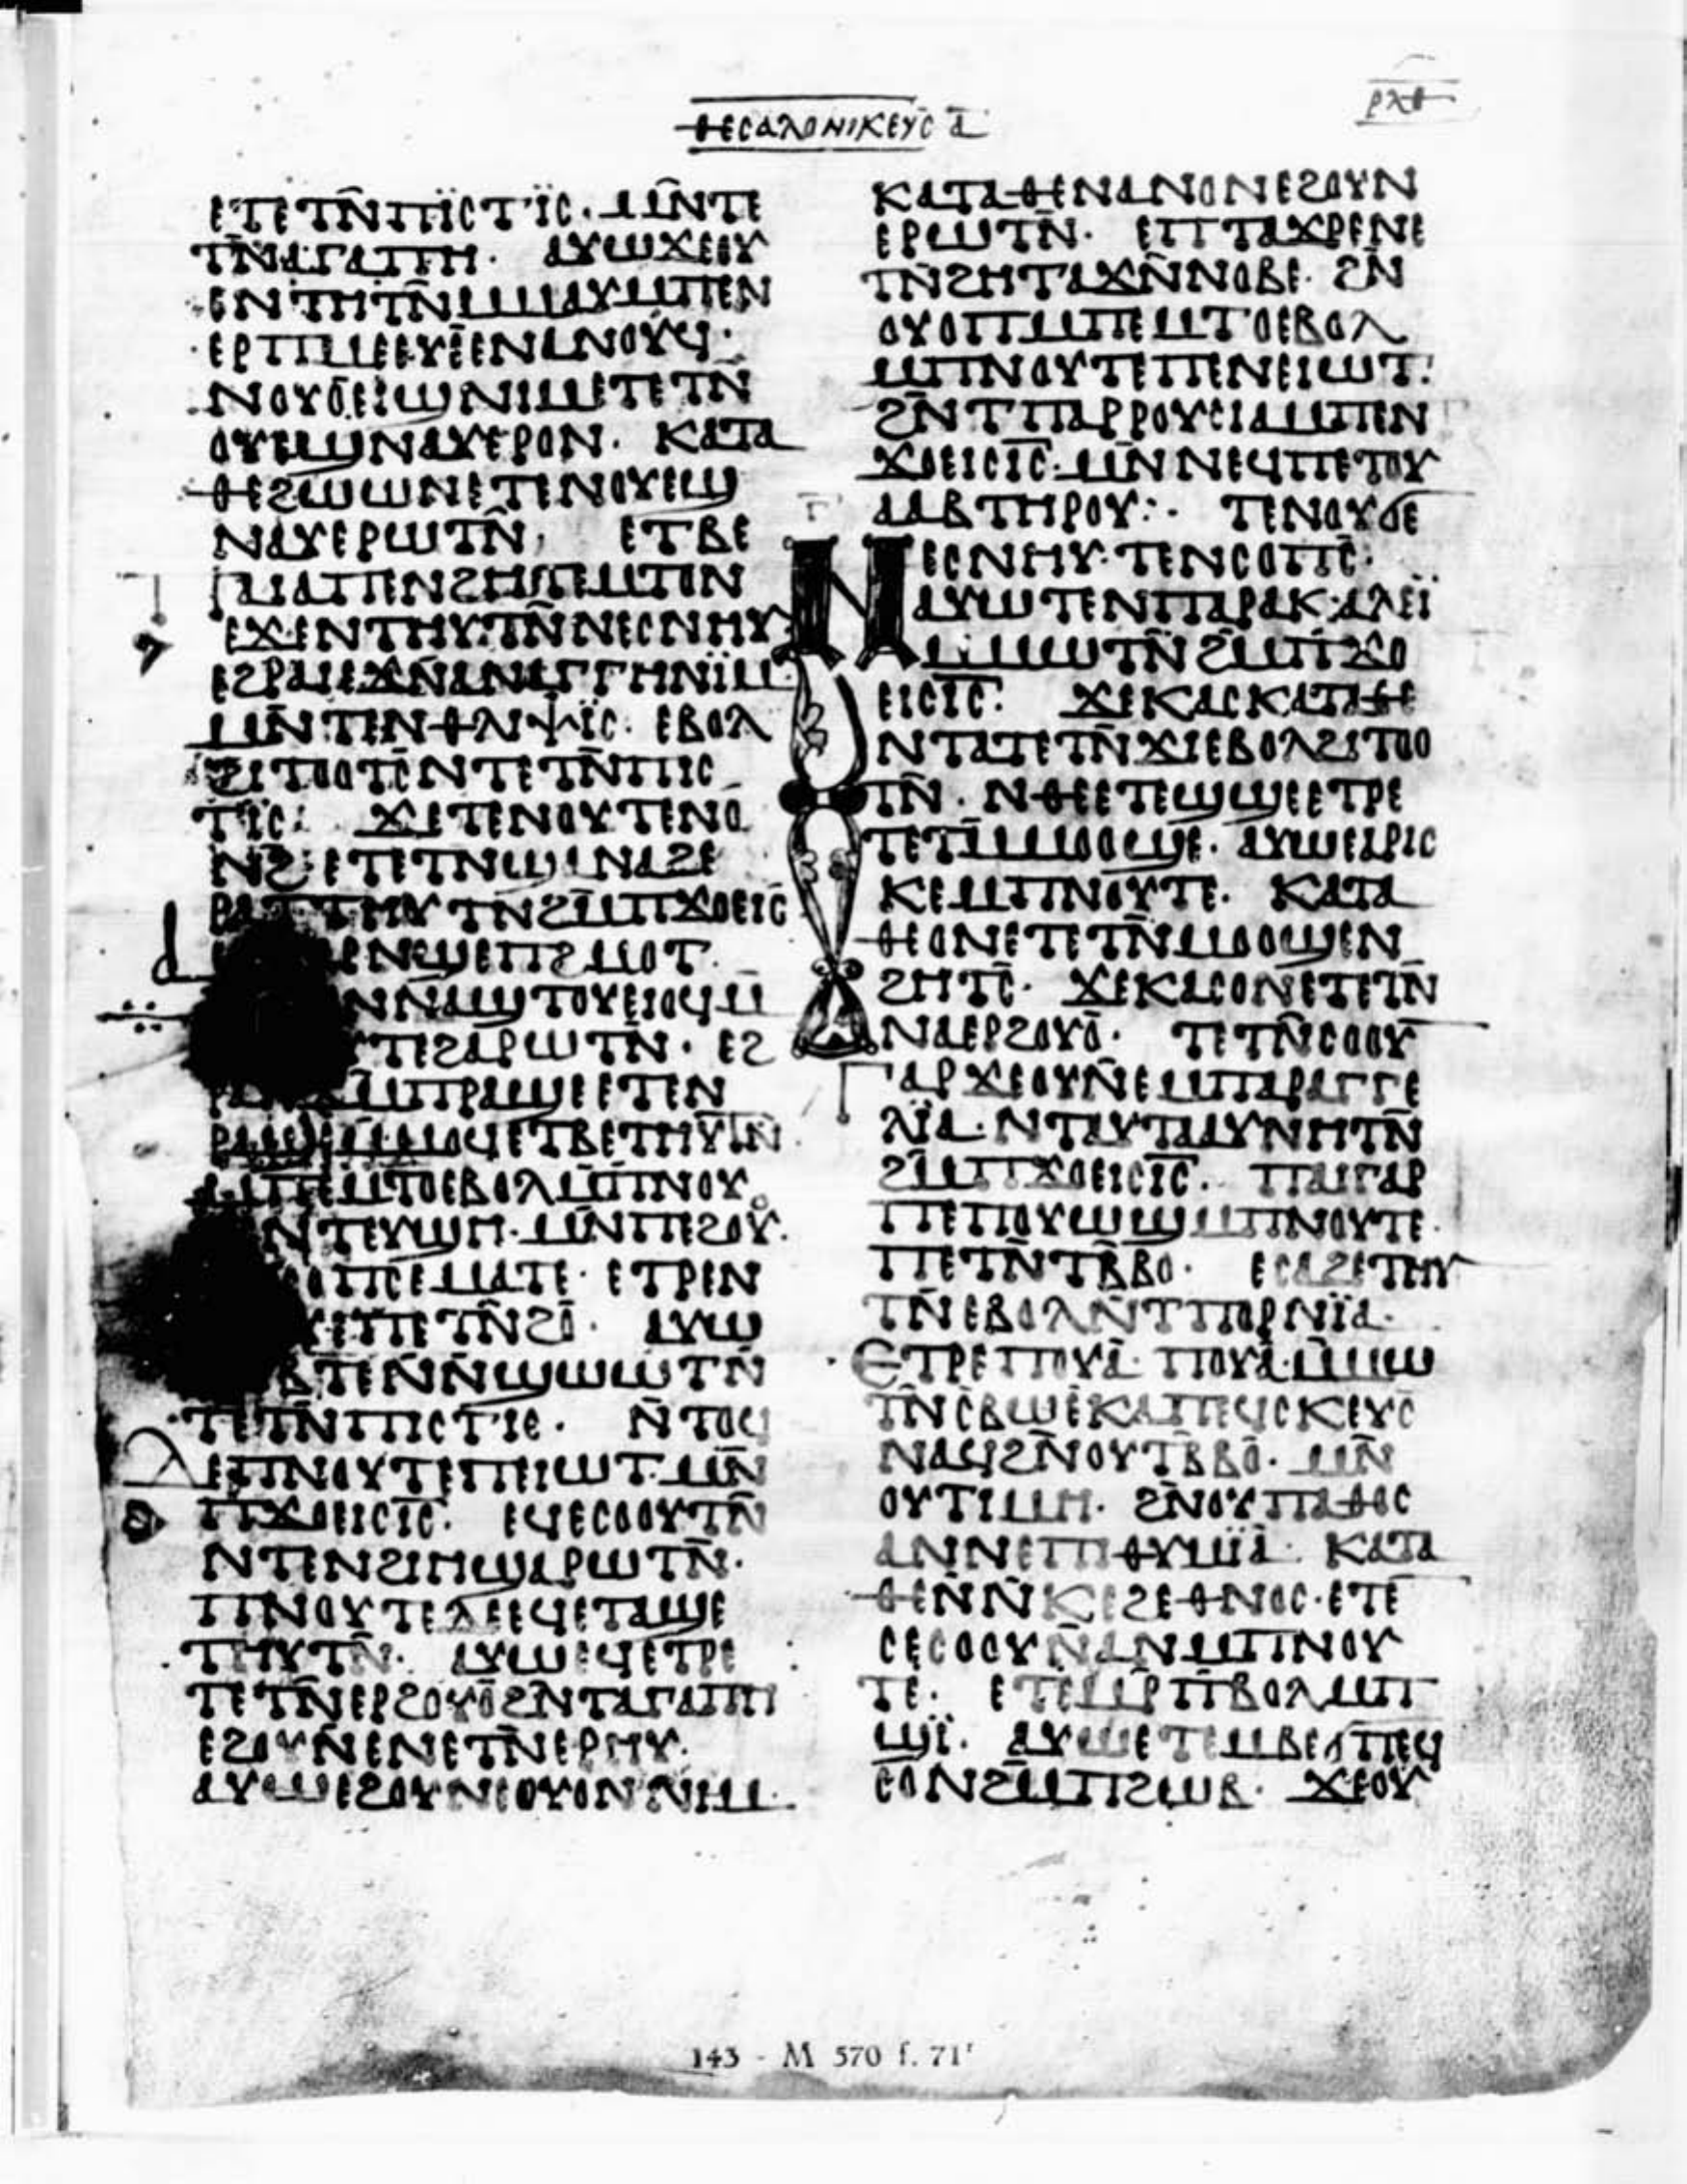 ⲑⲉⲥⲁⲗⲟⲛⲓⲕⲉⲩⲥ ⲁ̄
ⲣⲗⲑ
ⲉⲧⲉⲧⲛ̄ⲡⲓ̈ⲥⲧⲓ̈ⲥ. ⲙⲛ̄ⲧⲉ
ⲧⲛ̄ⲁⲅⲁⲡⲏ. ⲁⲩⲱϫⲉⲟⲩ
ⲛⲧⲏⲧⲛ̄ⲙⲙⲁⲩⲙⲡⲉⲛ
ⲉⲣⲡⲙⲉⲉⲩⲉⲉⲛⲁⲛⲟⲩϥ.
ⲛⲟⲩⲟⲉⲓϣⲛⲓⲙⲉⲧⲉⲧⲛ̄
ⲟⲩⲉϣⲛⲁⲩⲉⲣⲟⲛ. ⲕⲁⲧⲁ
ⲑⲉϩⲱⲱⲛⲉⲧⲉⲛⲟⲩⲉϣ
ⲛⲁⲩⲉⲣⲱⲧⲛ̄. ⲉⲧⲃⲉ
ⲡⲁⲓⲁⲡⲉⲛϩⲏⲧⲙⲧⲟⲛ
ⲉϫⲉⲛⲧⲏⲩⲧⲛ̄ⲛⲉⲥⲛⲏⲩ
ⲉϩⲣⲁⲓⲉϫⲛ̄ⲛⲁⲛⲁⲅⲅⲏⲛⲓ̈ⲙ
ⲙⲛ̄ⲧⲉⲛⲑⲗⲓⲯⲓ̈ⲥ. ⲉⲃⲟⲗ
ϩⲓⲧⲟⲟⲧⲥ̄ⲛⲧⲉⲧⲛ̄ⲡⲓⲥ
ⲧⲓ̈ⲥ: ϫⲉⲧⲉⲛⲟⲩⲧⲉⲛⲟ
ⲛϩ ⲉⲧⲉⲧⲛϣⲁⲛⲁϩⲉ
ⲣⲁⲧⲧⲏⲩⲧⲛϩⲙ̄ⲡϫⲟⲉⲓⲥ
ⲉⲛϣⲉⲡϩⲙⲟⲧ.
ⲛⲛⲁϣⲧⲟⲩⲉⲓⲟϥⲙ̄
ⲧⲉϩⲁⲣⲱⲧⲛ̄. ⲉϩ
ⲙⲡⲣⲁϣⲉⲉⲧⲉⲛ
ⲣⲁϣⲉⲙⲙⲟϥⲉⲧⲃⲉⲧⲏⲩⲧⲛ̄
ⲙⲡⲉⲙⲧⲟⲉⲃⲟⲗⲙ̄ⲡⲛⲟⲩ
ⲛⲧⲉⲩϣⲏ. ⲙⲛ̄ⲡⲉϩⲟⲩ.
ⲟⲡⲥⲉⲙⲁⲧⲉ. ⲉⲧⲣⲉⲛ
ⲩⲉⲡⲉⲧⲛ̄ϩⲟ̄. ⲁⲩⲱ
ⲃⲧⲉⲛ̄ⲛ̄ϣⲱⲱⲧⲛ̄
ⲧⲉⲧⲛ̄ⲡⲓⲥⲧⲓⲥ. ⲛ̄ⲧⲟϥ
ⲇⲉⲡⲛⲟⲩⲧⲉⲡⲉⲓⲱⲧ. ⲙⲛ̄
ⲡϫⲟⲉⲓⲥⲓ̄ⲥ̄. ⲉϥⲉⲥⲟⲟⲩⲧⲛ̄
ⲛⲧⲉⲛϩⲓⲏϣⲁⲣⲱⲧⲛ̄.
ⲡⲛⲟⲩⲧⲉⲇⲉⲉϥⲉⲧⲁϣⲉ
ⲧⲏⲩⲧⲛ̄. ⲁⲩⲱⲉϥⲉⲧⲣⲉ
ⲧⲉⲧⲛ̄ⲉⲣϩⲟⲩⲟ̄ϩⲛⲧⲁⲅⲁⲡⲏ
ⲉϩⲟⲩⲛ̄ⲉⲛⲉⲧⲛ̄ⲉⲣⲏⲩ.
ⲁⲩⲱⲉϩⲟⲩⲛⲉⲟⲩⲟⲛⲛⲓⲙ.
ⲕⲁⲧⲁⲑⲉⲛⲁⲛⲟⲛⲉϩⲟⲩⲛ
ⲉⲣⲱⲧⲛ̄. ⲉⲡⲧⲁϫⲣⲉⲛⲉ
ⲧⲛ̄ϩⲏⲧⲁϫⲛ̄ⲛⲟⲃⲉ. ϩⲛ̄
ⲟⲩⲟⲡⲙⲡⲉⲙⲧⲟⲉⲃⲟⲗ
ⲙⲡⲛⲟⲩⲧⲉⲡⲉⲛⲉⲓⲱⲧ:
ϩⲛ̄ⲧⲡⲁⲣⲣⲟⲩⲥⲓⲁⲙⲡⲉⲛ
ϫⲟⲉⲓⲥⲓ̄ⲥ̄. ⲙⲛ̄ⲛⲉϥⲡⲉⲧⲟⲩ
ⲁⲁⲃⲧⲏⲣⲟⲩ:. ⲧⲉⲛⲟⲩϭⲉ
ⲛⲉⲥⲛⲏⲩ. ⲧⲉⲛⲥⲟⲡⲥ̄.
ⲁⲩⲱⲧⲉⲛⲡⲁⲣⲁⲕⲁⲗⲉⲓ̈
ⲙⲙⲱⲧⲛ̄ϩⲙⲡϫⲟ
ⲉⲓⲥⲓ̄ⲥ̄. ϫⲉⲕⲁⲥⲕⲁⲧⲁⲑⲉ
ⲛⲧⲁⲧⲉⲧⲛ̄ϫⲓⲉⲃⲟⲗϩⲓⲧⲟⲟ
ⲧⲛ̄. ⲛⲑⲉⲉⲧⲉϣϣⲉⲉⲧⲣⲉ
ⲧⲉⲧⲙ̄ⲙⲟⲟϣⲉ. ⲁⲩⲱⲉⲁⲣⲓⲥ
ⲕⲉⲙⲡⲛⲟⲩⲧⲉ. ⲕⲁⲧⲁ
ⲑⲉⲟⲛⲉⲧⲉⲧⲛ̄ⲙⲟⲟϣⲉⲛ
ϩⲏⲧⲥ̄. ϫⲉⲕⲁⲥⲟⲛⲉⲧⲉⲧⲛ̄
ⲛⲁⲉⲣϩⲟⲩⲟ̄. ⲧⲉⲧⲛ̄ⲥⲟⲟⲩ
ⲅⲁⲣϫⲉⲟⲩⲛ̄ⲉⲙⲡⲁⲣⲁⲅⲅⲉ
ⲗⲓ̈ⲁ. ⲛⲧⲁⲩⲧⲁⲁⲩⲛⲏⲧⲛ̄
ϩⲙⲡϫⲟⲉⲓⲥⲓ̄ⲥ̄. ⲡⲁⲓⲅⲁⲣ
ⲡⲉⲡⲟⲩⲱϣⲙⲡⲛⲟⲩⲧⲉ.
ⲡⲉⲧⲛ̄ⲧⲃ̄ⲃⲟ. ⲉⲥⲁϩⲉⲧⲏⲩ
ⲧⲛ̄ⲉⲃⲟⲗⲛ̄ⲧⲡⲟⲣⲛⲓ̈ⲁ.
ⲉⲧⲣⲉⲡⲟⲩⲁ̄. ⲡⲟⲩⲁ̄. ⲙ̄ⲙⲱ
ⲧⲛ̄ⲥⲃⲱⲉⲕⲁⲡⲉϥⲥⲕⲉⲩⲥ
ⲛⲁϥϩⲛ̄ⲟⲩⲧⲃ̄ⲃⲟ̄. ⲙⲛ̄
ⲟⲩⲧⲓⲙⲏ. ϩⲛⲟⲩⲡⲁⲑⲟⲥ
ⲁⲛⲛⲉⲡⲓⲑⲩⲙⲓ̈ⲁ. ⲕⲁⲧⲁ
ⲑⲉⲛ̄ⲛ̄ⲕⲉϩⲉⲑⲛⲟⲥ. ⲉⲧⲉ
ⲥⲉⲥⲟⲟⲩⲛ̄ⲁⲛⲙⲡⲛⲟⲩ
ⲧⲉ. ⲉⲧⲉⲙⲣ̄ⲡⲃⲟⲗⲙⲡ
ϣⲓ̈. ⲁⲩⲱⲉⲧⲉⲙⲃⲉϭⲡⲉϥ
ⲥⲟⲛϩⲙ̄ⲡϩⲱⲃ. ϫⲉⲟⲩ
143 - M 570 f. 71r